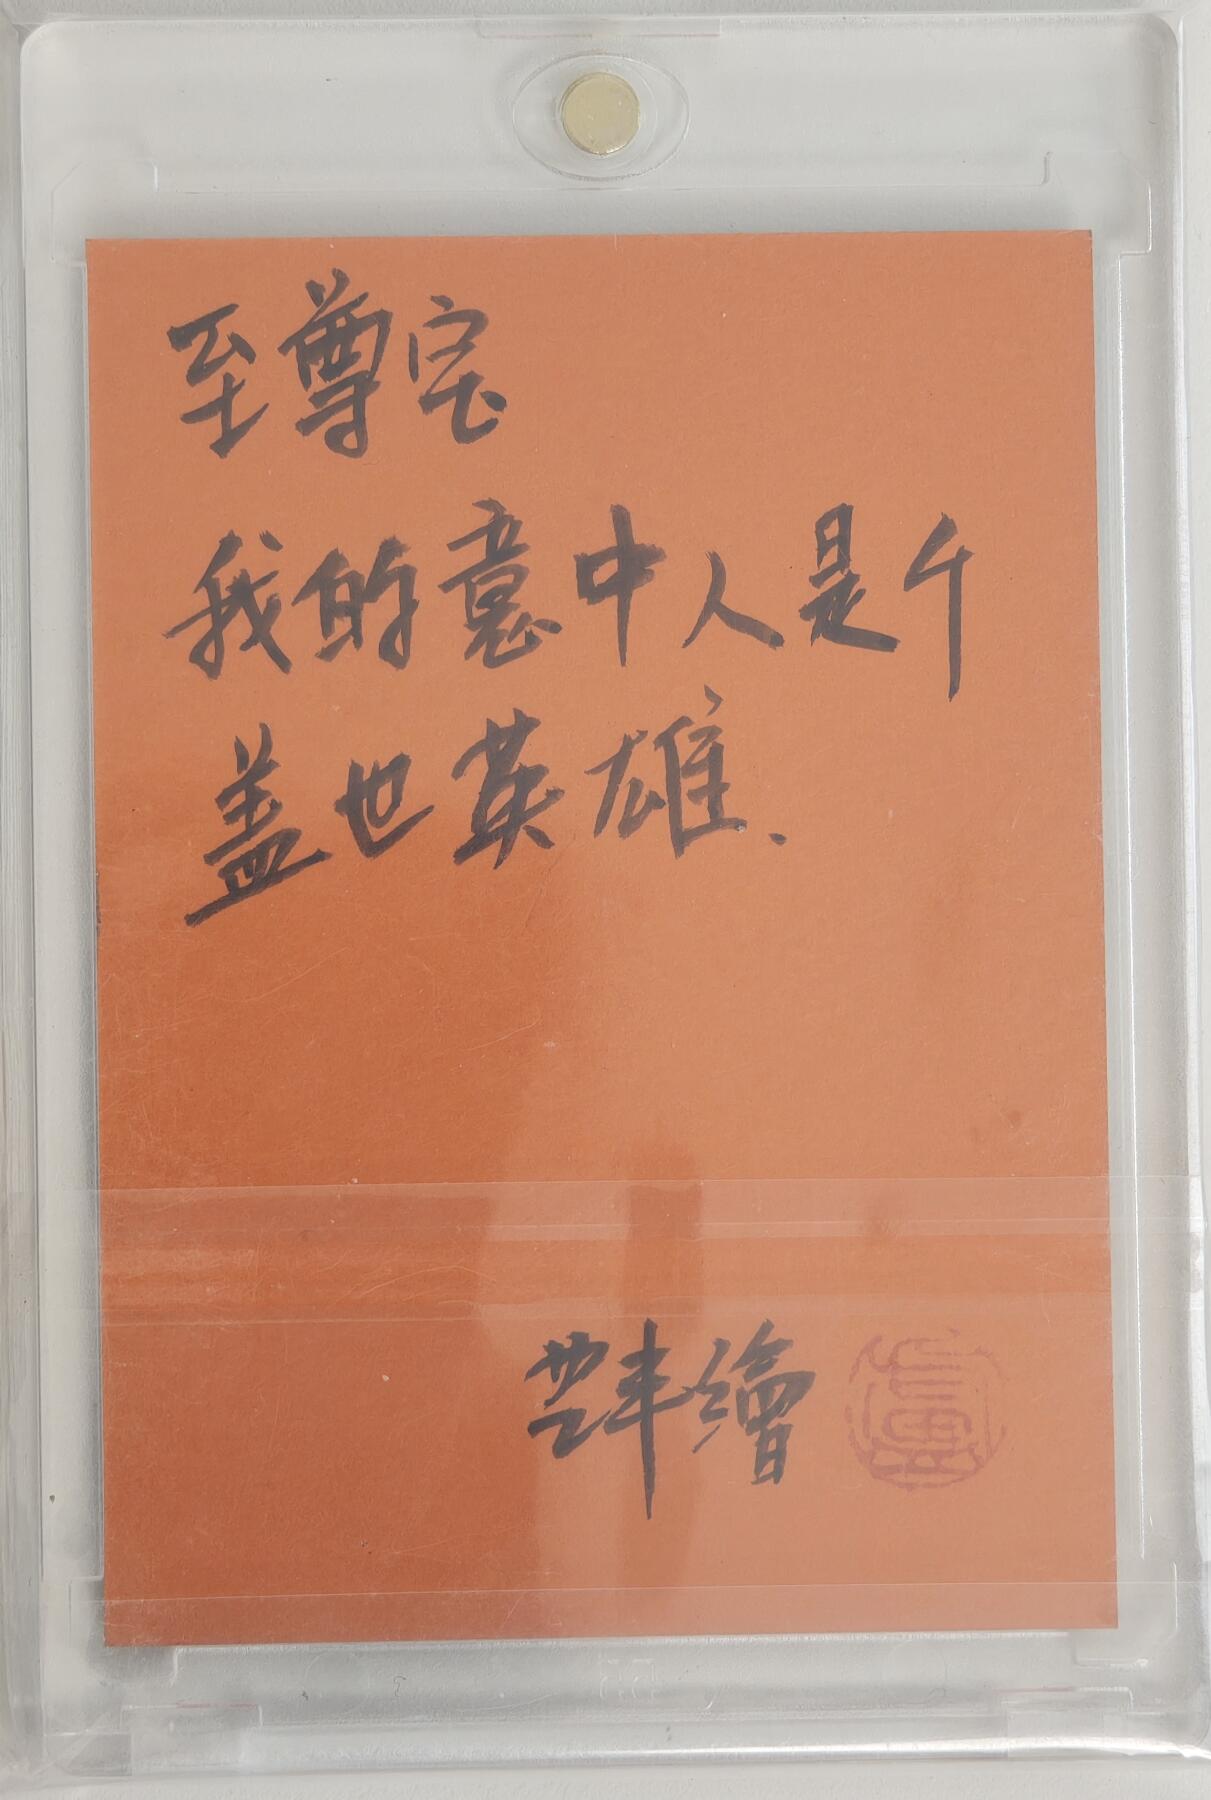 至尊宝
我的意中人是个
盖世英雄.
繪